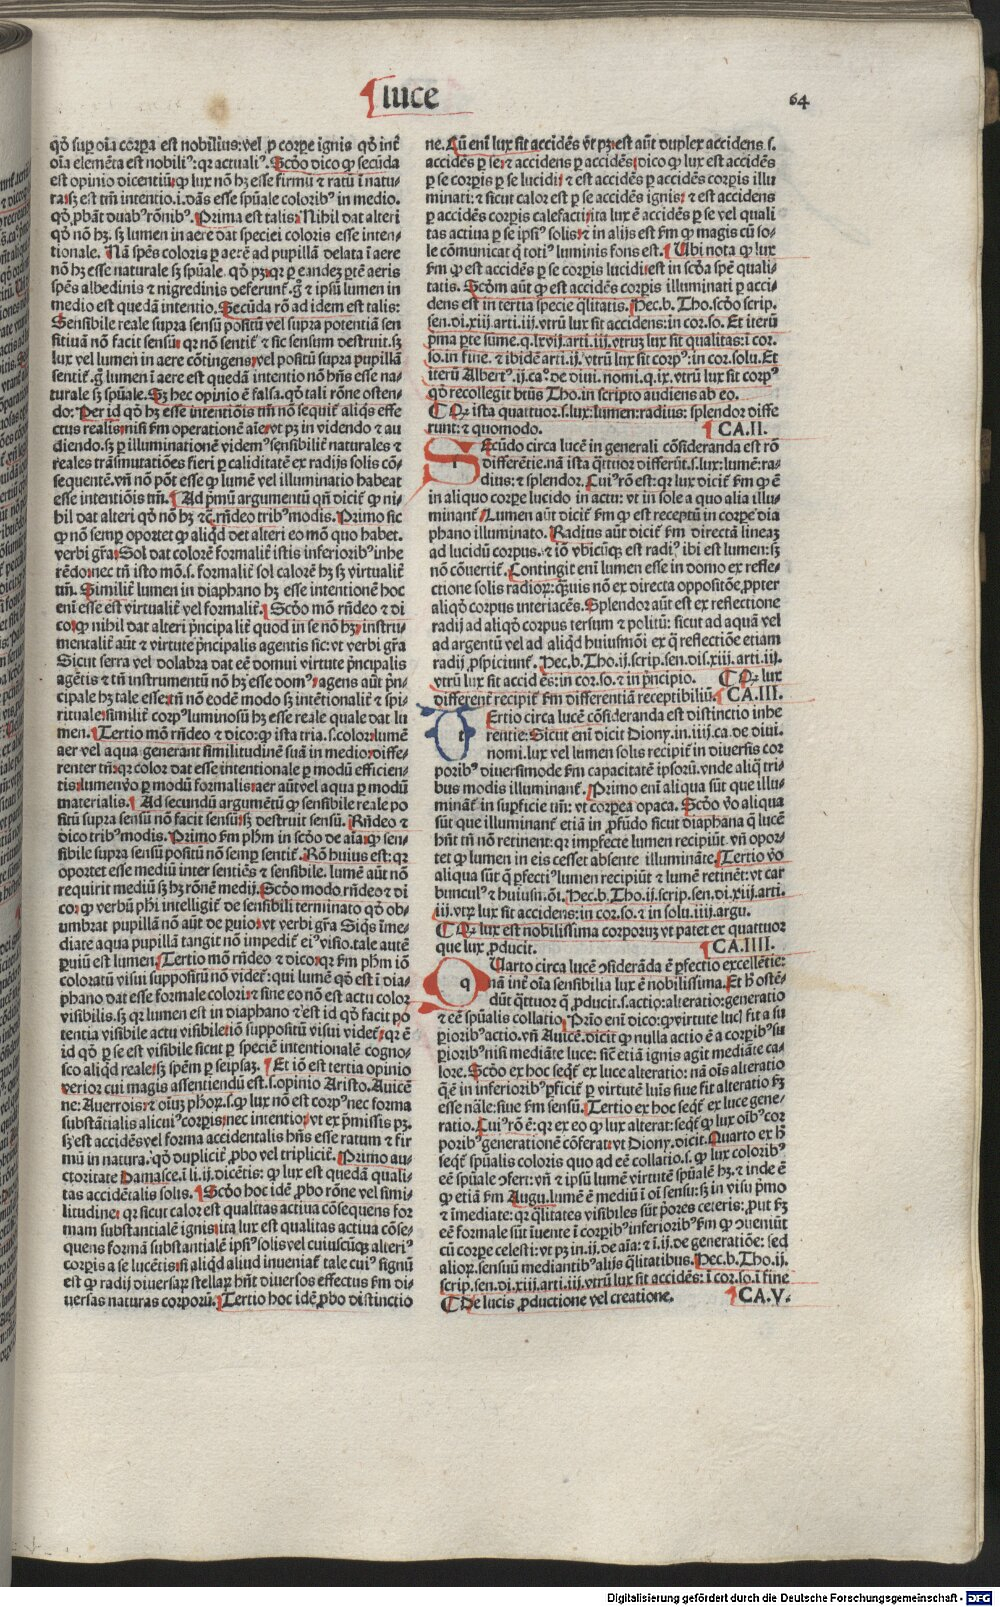 luce
64
qđ suꝑ oīa corꝑa est nobilius: vel ꝓ corꝑe ignis qđ int᷑
oīa elemēta est nobiliꝰ: qꝛ actualiꝰ. Scđo dico ꝙ secūda
est opinio dicentiū ꝙ lux nō hꝫ esse firmū ⁊ ratū ī natu-
ra: sꝫ est tm̄ intentio .i. dās esse spūale coloribꝰ in medio.
qđ ꝓbāt duabꝰ rōnibꝰ. Prima est talis: Nihil dat alteri
qđ nō hꝫ. sꝫ lumen in aere dat speciei coloris esse inten-
tionale. Nā spēs coloris ꝑ aerē ad pupillā delata ī aere
nō hꝫ esse naturale sꝫ spūale. qđ pꝫ: qꝛ ꝑ eandeꝫ ꝑtē aeris
spēs albedinis ⁊ nigredinis deferunt᷑. g̊ ⁊ ipsū lumen in
medio est quedā intentio. Secūda rō ad idem est talis:
Sensibile reale supra sensū positū vel supra potentiā sen
sitiuā nō facit sensū: qꝛ nō sentit᷑ ⁊ sic sensum destruit. sꝫ
lux vel lumen in aere cōtingens: vel positū supra pupillā
sentit᷑. g̊ lumen ī aere est quedā intentio nō hn̄s esse na-
turale sꝫ spūale. Sꝫ hec opinio ē falsa. qđ tali rōne osten-
do: Per id qđ hꝫ esse intentiōis tm̄ nō sequit᷑ aliqs effe
ctus realis: nisi ẜm operationē aīe: vt pꝫ in videndo ⁊ au
diendo. sꝫ ꝑ illuminationē videmꝰ sensibilit᷑ naturales ⁊
reales trāsmutatiōes fieri ꝑ caliditatē ex radijs solis cō-
sequentē. vn̄ nō pōt esse ꝙ lumē vel illuminatio habeat
esse intentiōis tm̄. Ad pͥmū argumentū qn̄ dicit᷑ ꝙ ni-
hil dat alteri qđ nō hꝫ ⁊c̄. rn̄deo tribꝰ modis. Primo sic
ꝙ nō semꝑ oportet ꝙ aliqđ det alteri eo mō quo habet.
verbi gr̄a: Sol dat colorē formalit᷑ istis inferioribꝰ inhe
rēdo: nec tn̄ isto mō .s. formalit᷑ sol calorē hꝫ sꝫ virtualit᷑
tm̄. Similit᷑ lumen in diaphano hꝫ esse intentionē hoc
enī esse est virtualit᷑ vel formalit᷑. Scđo mō rn̄deo ⁊ di
co: ꝙ nihil dat alteri pͥncipalit᷑ quod in se nō hꝫ: instru-
mentalit᷑ aūt ⁊ virtute pͥncipalis agentis sic: vt verbi gr̄a
Sicut serra vel dolabra dat eē domui virtute pͥncipalis
agētis ⁊ tn̄ instrumentū nō hꝫ esse domꝰ: agens aūt pͥn-
cipale hꝫ tale esse: tn̄ nō eodē modo sꝫ intētionalit᷑ ⁊ spi-
rituale: similit᷑ corpꝰ luminosū hꝫ esse reale quale dat lu
men. Tertio mō rn̄deo ⁊ dico: ꝙ ista tria .s. color: lumē
aer vel aqua generant similitudinē suā in medio: diffe-
renter tn̄: qꝛ color dat esse intentionale ꝑ modū efficien-
tis: lumen v̊o ꝑ modū formalis: aer aūt vel aqua ꝑ modū
materialis. Ad secundū argumētū ꝙ sensibile reale po
situ supra sensū nō facit sensū: sꝫ destruit sensū. Rn̄deo ⁊
dico tribꝰ modis. Primo ẜm phm̄ in scđo de aīa: ꝙ sen-
sibile supra sensū positū nō semꝑ sentit᷑. Rō huius est: qꝛ
oportet esse mediū inter sentiēs ⁊ sensibile. lumē aūt nō
requirit mediū sꝫ hꝫ rōnē medij. Scđo modo rn̄deo ⁊ di
co: ꝙ verbū phi intelligit᷑ de sensibili terminato qđ ob-
umbrat pupillā nō aūt de ꝑuio: vt verbi gr̄a Siqs īme-
diate aqua pupillā tangit nō impedit᷑ eiꝰ visio. tale autē
ꝑuiū est lumen. Tertio mō rn̄deo ⁊ dico: qꝛ ẜm phm̄ iō
coloratū visui suppositū nō videt᷑: qui lumē qđ est ī dia-
phano dat esse formale colori: ⁊ sine eo nō est actu color
visibilis. sꝫ qꝛ lumen est in diaphano ⁊ est id qđ facit po
tentia visibile actu visibile: iō suppositū visui videt᷑: qꝛ ē
id qđ ꝑ se est visibile sicut ꝑ speciē intentionalē cogno-
sco aliqđ reale: sꝫ spēm ꝑ seipsaꝫ. Et iō est tertia opinio
verior cui magis assentiendū est .s. opinio Aristo. Auicē
ne: Auerrois: ⁊ oīuꝫ phoꝝ .s. ꝙ lux nō est corpꝰ nec forma
substātialis alicuiꝰ corꝑis: nec intentio: vt ex pͥmissis pꝫ.
sꝫ est accidēs vel forma accidentalis hn̄s esse ratum ⁊ fir
mū in natura. qđ duplicit᷑ ꝓbo vel triplicit᷑. Primo au-
ctoritate Damasce. ī li. ij. dicētis: ꝙ lux est quedā quali-
tas accidētalis solis. Scđo hoc idē ꝓbo rōne vel simi-
litudine: qꝛ sicut calor est qualitas actiua cōsequens for
mam substantialē ignis: ita lux est qualitas actiua cōse-
quens formā substantialē ipsiꝰ solis vel cuiuscūqꝫ alteriꝰ
corꝑis a se lucētis: si aliqđ aliud inueniat᷑ tale cuiꝰ signū
est ꝙ radij diuersaꝝ stellaꝝ hn̄t diuersos effectus ẜm di-
uersas naturas corporū. Tertio hoc idē ꝓbo distinctio
ne. Cū enī lux sit accidēs vt pꝫ: est aūt duplex accidens .s.
accidēs ꝑ se: ⁊ accidens ꝑ accidēs: dico ꝙ lux est accidēs
ꝑ se corꝑis ꝑ se lucidi: ⁊ est accidēs ꝑ accidēs corꝑis illu
minati: ⁊ sicut calor est ꝑ se accidēs ignis: ⁊ est accidens
ꝑ accidēs corꝑis calefacti: ita lux ē accidēs ꝑ se vel quali
tas actiua ꝑ se ipsiꝰ solis: ⁊ in alijs est ẜm ꝙ magis cū so-
le cōmunicat q̇ totiꝰ luminis fons est. Ubi nota ꝙ lux
ẜm ꝙ est accidēs ꝑ se corꝑis lucidi: est in scđa spē quali-
tatis. Scđm aūt ꝙ est accidēs corꝑis illuminati ꝑ acci-
dens est in tertia specie q̄litatis. Hec. b. Tho. scđo scrip.
sen. di. xiij. arti. iij. vtrū lux sit accidens: in cor. so. Et iterū
pͥma ꝑte sume. q. lxvij. arti. iij. vtruꝫ lux sit qualitas: i cor.
so. in fine. ⁊ ibidē arti. ij. vtrū lux sit corpꝰ: in cor. solu. Et
iterū Albertꝰ. ij. caº. de diui. nomi. q. ix. vtrū lux sit corpꝰ
qđ recollegit btūs Tho. in scripto audiens ab eo.
Qꝛ ista quattuor .s. lux: lumen: radius: splendor diffe
runt: ⁊ quomodo. CA. II.
SEcūdo circa lucē in generali cōsideranda est rō
differētie. nā ista q̄ttuor differūt .s. lux: lumē: ra-
dius: ⁊ splendor. Cuiꝰ rō est: qꝛ lux dicit᷑ ẜm ꝙ ē
in aliquo corꝑe lucido in actu: vt in sole a quo alia illu-
minant᷑. Lumen aūt dicit᷑ ẜm ꝙ est receptū in corꝑe dia
phano illuminato. Radius aūt dicit᷑ ẜm directā lineaꝫ
ad lucidū corpus. ⁊ iō vbicūqꝫ est radiꝰ ibi est lumen: sꝫ
nō cōuertit᷑. Contingit enī lumen esse in domo ex refle-
ctione solis radioꝝ: qꝫuis nō ex directa oppositōe ꝓpter
aliqđ corpus interiacēs. Splendor aūt est ex reflectione
radij ad aliqđ corpus tersum ⁊ politū: sicut ad aquā vel
ad argentū vel ad aliqđ huiusmōi ex q̇ reflectiōe etiam
radij ꝓspiciunt᷑. Hec. b. Tho. ij. scrip. sen. dis. xiij. arti. iij.
vtrū lux sit accidēs: in cor. so. ⁊ in pͥncipio. Qꝛ lux
different᷑ recipit᷑ ẜm differentiā receptibiliū. CA. III.
TErtio circa lucē cōsideranda est distinctio inhe
rentie: Sicut enī dicit Diony. in. iiij. ca. de diui.
nomi. lux vel lumen solis recipit᷑ in diuersis cor
poribꝰ diuersimode ẜm capacitatē ipsorū. vnde aliq̄ tri-
bus modis illuminant᷑. Primo enī aliqua sūt que illu-
minant᷑ in suꝑficie tm̄: vt corꝑea opaca. Scđo v̊o aliqua
sūt que illuminant᷑ etiā in ꝓfūdo sicut diaphana q̄ lucē
hn̄t tn̄ nō retinent: qꝛ imꝑfecte lumen recipiūt. vn̄ opor-
tet ꝙ lumen in eis cesset absente illumināte. Tertio v̊o
aliqua sūt q̄ ꝑfectiꝰ lumen recipiūt ⁊ lumē retinēt: vt car
bunculꝰ ⁊ huiusmōi. Hec. b. Tho. ij. scrip. sen. di. xiij. arti.
iij. vtꝝ lux sit accidens: in cor. so. ⁊ in solu. iiij. argu.
Qꝛ lux est nobilissima corporuꝫ vt patet ex quattuor
que lux ꝓducit. CA. IIII.
QUarto circa lucē ɔsiderāda ē ꝑfectio excellētie:
nā int᷑ oīa sensibilia lux ē nobilissima. Et h̊ ostē-
dūt q̄ttuor q̄ ꝓducit .s. actio: alteratio: generatio
⁊ eē spūalis collatio. Prīo enī dico: ꝙ virtute lucꝭ fit a su
ꝑioribꝰ actio. vn̄ Auicē. dicit ꝙ nulla actio ē a corꝑibꝰ su
ꝑioribꝰ nisi mediāte luce: sic̄ etiā ignis agit mediāte ca-
lore. Scđo ex hoc seqt᷑ ex luce alteratio: nā oīs alteratio
q̄ ē in inferioribꝰ ꝑficit᷑ ꝑ virtutē lumīs siue fit alteratio ẜꝫ
esse nāle: siue ẜm sensū. Tertio ex hoc seqt᷑ ex luce gene-
ratio. Cuiꝰ rō ē: qꝛ ex eo ꝙ lux alterat: seqt᷑ ꝙ lux oībꝰ cor
poribꝰ generationē cōferat: vt Diony. dicit. Quarto ex h̊
seqt᷑ spūalis coloris quo ad eē collatio .s. ꝙ lux coloribꝰ
eē spūale ɔfert: vn̄ ⁊ ipsū lumē virtutē spūalē hꝫ. ⁊ inde ē
ꝙ etiā ẜm Augu. lumē ē mediū ī oī sensu: sꝫ in visu pͥmo
⁊ īmediate: qꝛ q̄litates visibiles sūt pͥores ceteris: ꝓut ẜꝫ
eē formale sūt inuente ī corꝑibꝰ inferioribꝰ ẜm ꝙ ɔueniūt
cū corꝑe celesti: vt pꝫ in. ij. de aīa: ⁊ ī. ij. de generatiōe: sed
alioꝝ sensuū mediantibꝰ alijs q̄litatibus. Hec. b. Tho. ij.
scrip. sen. di. xiij. arti. iij. vtrū lux sit accidēs: ī cor. so. ī fine
De lucis ꝓductione vel creatione. CA. V.
Digitalisierung gefördert durch die Deutsche Forschungsgemeinschaft - DFG